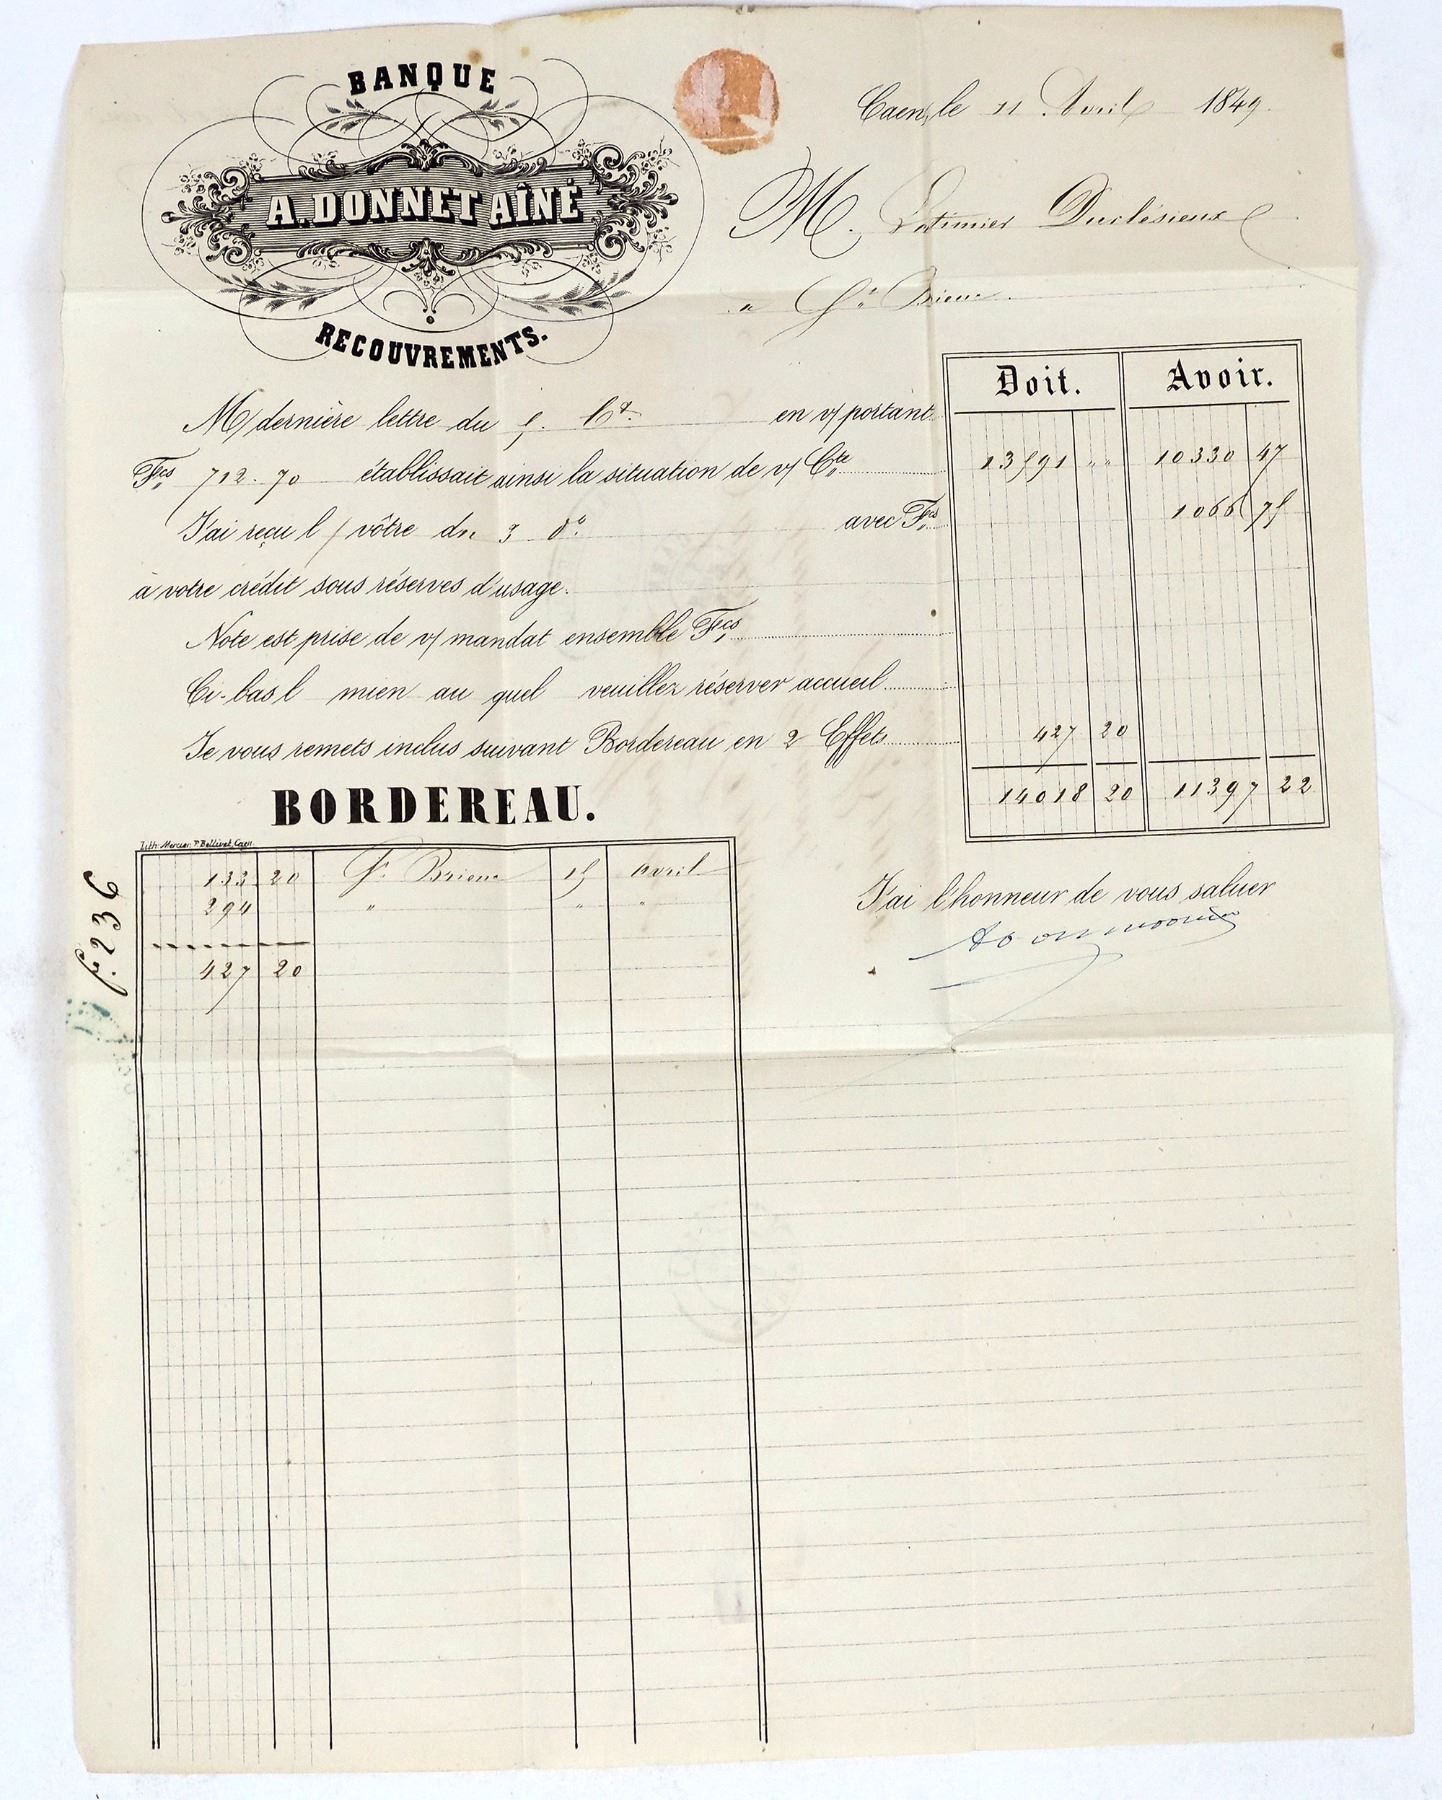 BANQUE
A. DONNET AÎNÉ
RECOUVREMENTS.
Caen, le 11 Avril 1849.
M. Latimier Duclésieux
a St Brieuc
Doit. Avoir.
M/ dernière lettre du 5. Ct. en v/ portant
Fcs 712.70 établissait ainsi la situation de v/ Cte 13591 " " 10330 47
J'ai reçu l / vôtre du 3 do avec Fcs 1066 75
à votre crédit sous réserves d'usage.
Note est prise de v/ mandat ensemble Fcs
Ci-bas l mien au quel veuillez réserver accueil
Je vous remets inclus suivant Bordereau en 2 Effets 427 20
14018 20 11397 22
BORDEREAU.
Lith. Mercier, Pl. Bellivet, Caen
133 20 St Brieuc 15 avril
294 " " "
427 20
f. 236
J'ai l'honneur de vous saluer